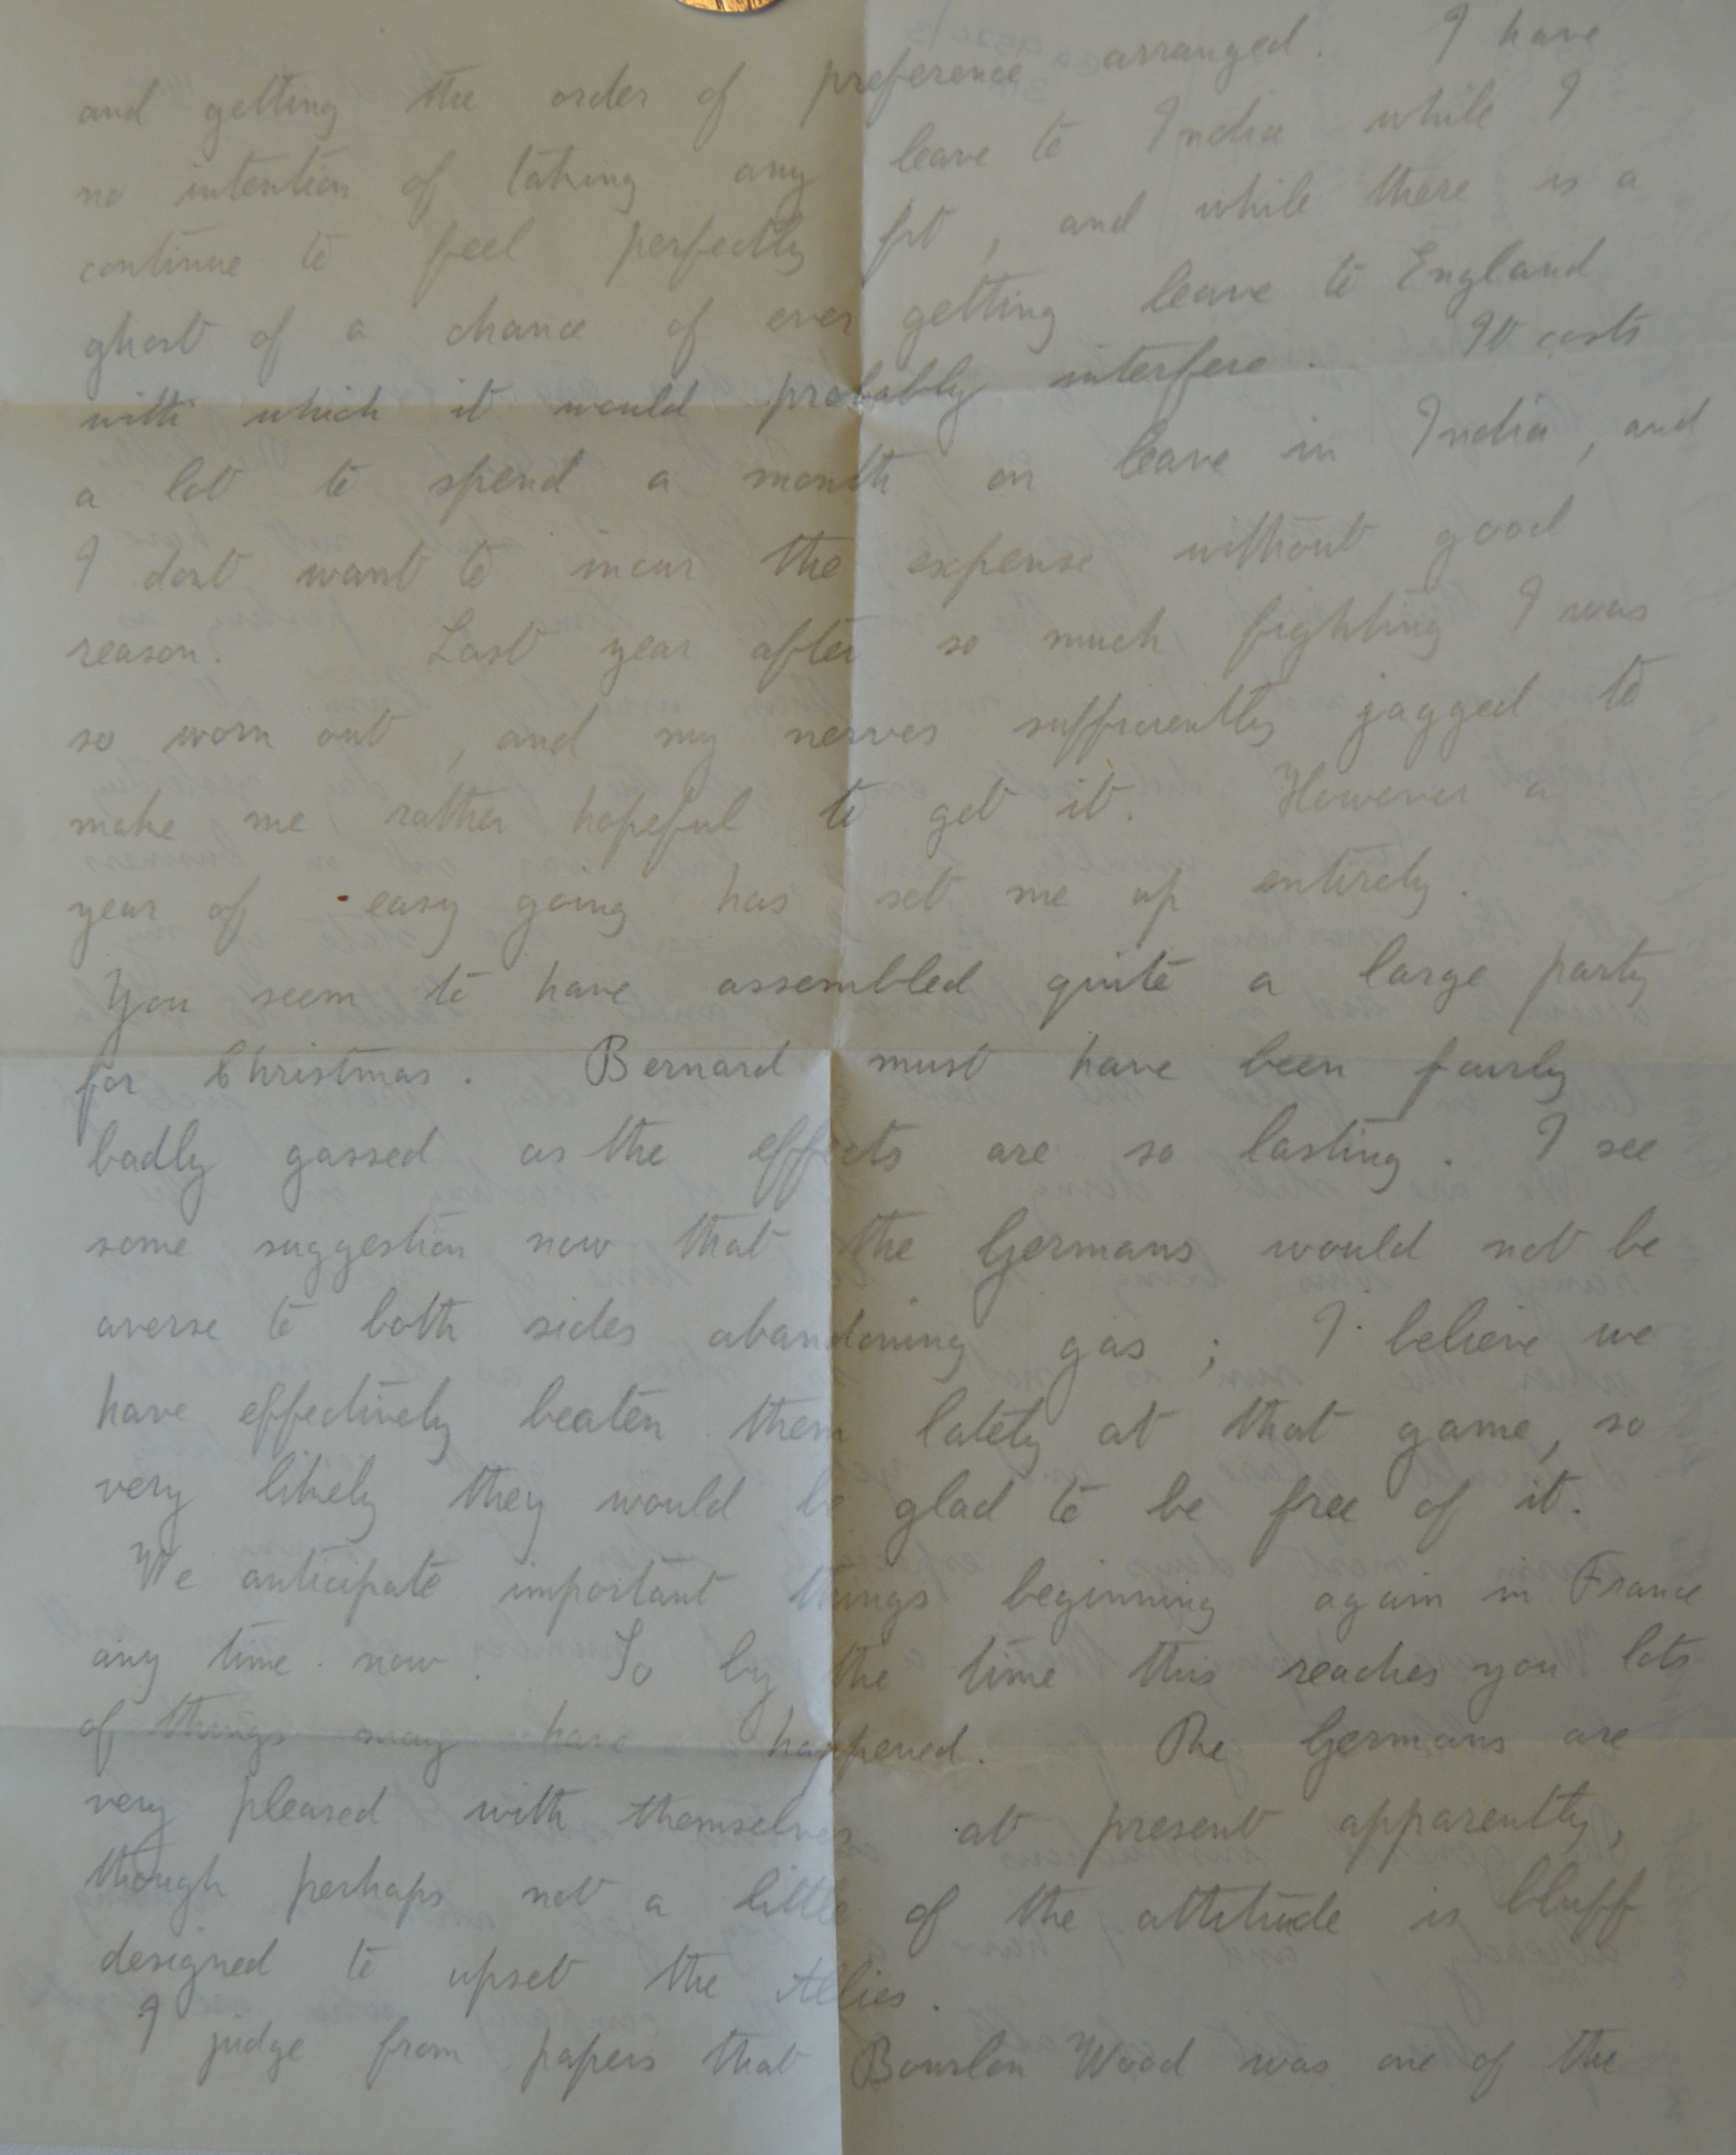 and getting the order of preference arranged. I have
no intention of taking any leave to India while I
continue to feel perfectly fit, and while there is a
ghost of a chance of ever getting leave to England
with which it would probably interfere. It costs
a lot to spend a month on leave in India, and
I dont want to incur the expense without good
reason. Last year after so much fighting I was
so worn out, and my nerves sufficiently jagged to
make me rather hopeful to get it. However a
year of easy going has set me up entirely.
You seem to have assembled quite a large party
for Christmas. Bernard must have been fairly
badly gassed as the effects are so lasting. I see
some suggestion now that the Germans would not be
averse to both sides abandoning gas; I believe we
have effectively beaten them lately at that game, so
very likely they would be glad to be free of it.
We anticipate important things beginning again in France
any time now. So by the time this reaches you lots
of things may have happened. The Germans are
very pleased with themselves at present apparently,
though perhaps not a little of the attitude is bluff
designed to upset the Allies.
I judge from papers that Bourlon Wood was one of the